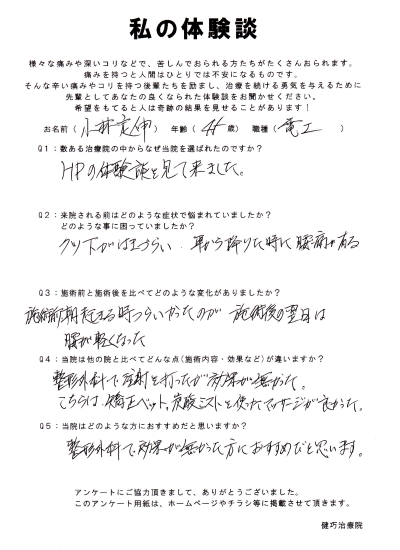 私の体験談
様々な痛みや深いコリなどで、苦しんでおられる方たちがたくさんおられます。
痛みを持つと人間はひとりでは不安になるものです。
そんな辛い痛みやコリを持つ後輩たちを励まし、治療を続ける勇気を与えるために
先輩としてあなたの良くなられた体験談をお聞かせください。
希望をもてると人は奇跡の結果を見せることがあります！
お名前（小林 伸） 年齢（44歳） 職種（電工）
Q1：数ある治療院の中からなぜ当院を選ばれたのですか？
HPの体験談を見て来ました。
Q2：来院される前はどのような症状で悩まれていましたか？
どのような事に困っていました？
クツ下がはきづらい 車から降りた時に腰痛がある
Q3：施術前と施術後を比べてどのような変化がありましたか？
施術前朝起きる時つらかったのが 施術後の翌日は
腰が軽くなった
Q4：当院は他の院と比べてどんな点(施術内容・効果など)が違いますか？
整形外科で注射を打ったが効果が無かった。
こちらは、矯正ベット、炭酸ミストを使ったマッサージが良かった。
Q5：当院はどのような方におすすめだと思いますか？
整形外科で効果が無かった方におすすめだと思います。
アンケートにご協力頂きまして、ありがとうございました。
このアンケート用紙は、ホームページやチラシ等に掲載させて頂きます。
健巧治療院